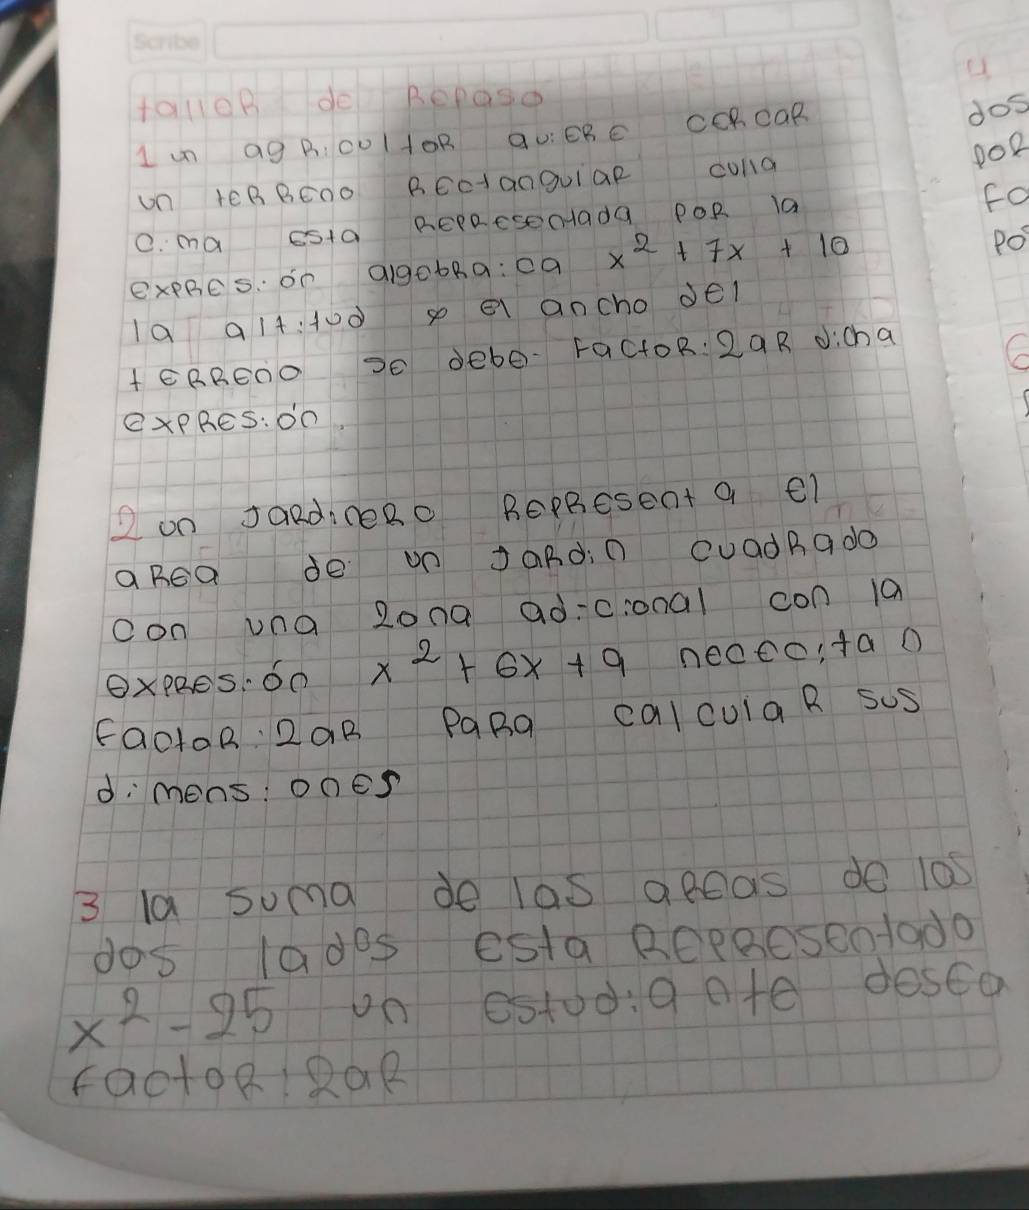 Scribe
talleR de Repaso
1 un agRicultoR quieRe ceRcaR
un teRReno RectangulaR culla
cima esta RepResentada poR la
expResión algebRaica x² + 7x + 10
la altitud y el ancho del
teRReno se debe factoRizaR dicha
expResión.
2 un JaRdineRo RepResenta el
aRea de un JaRdin cuadRado
con una zona adicional con la
expResión x² + 6x + 9 nececitan
factoRizaR paRa calculaR sus
dimensiones
3 la suma de las aReas de los
dos lados esta RepResentado
x² - 25 un estudiante desea
factoRizaR
4
dos
poR
Fa
po
6